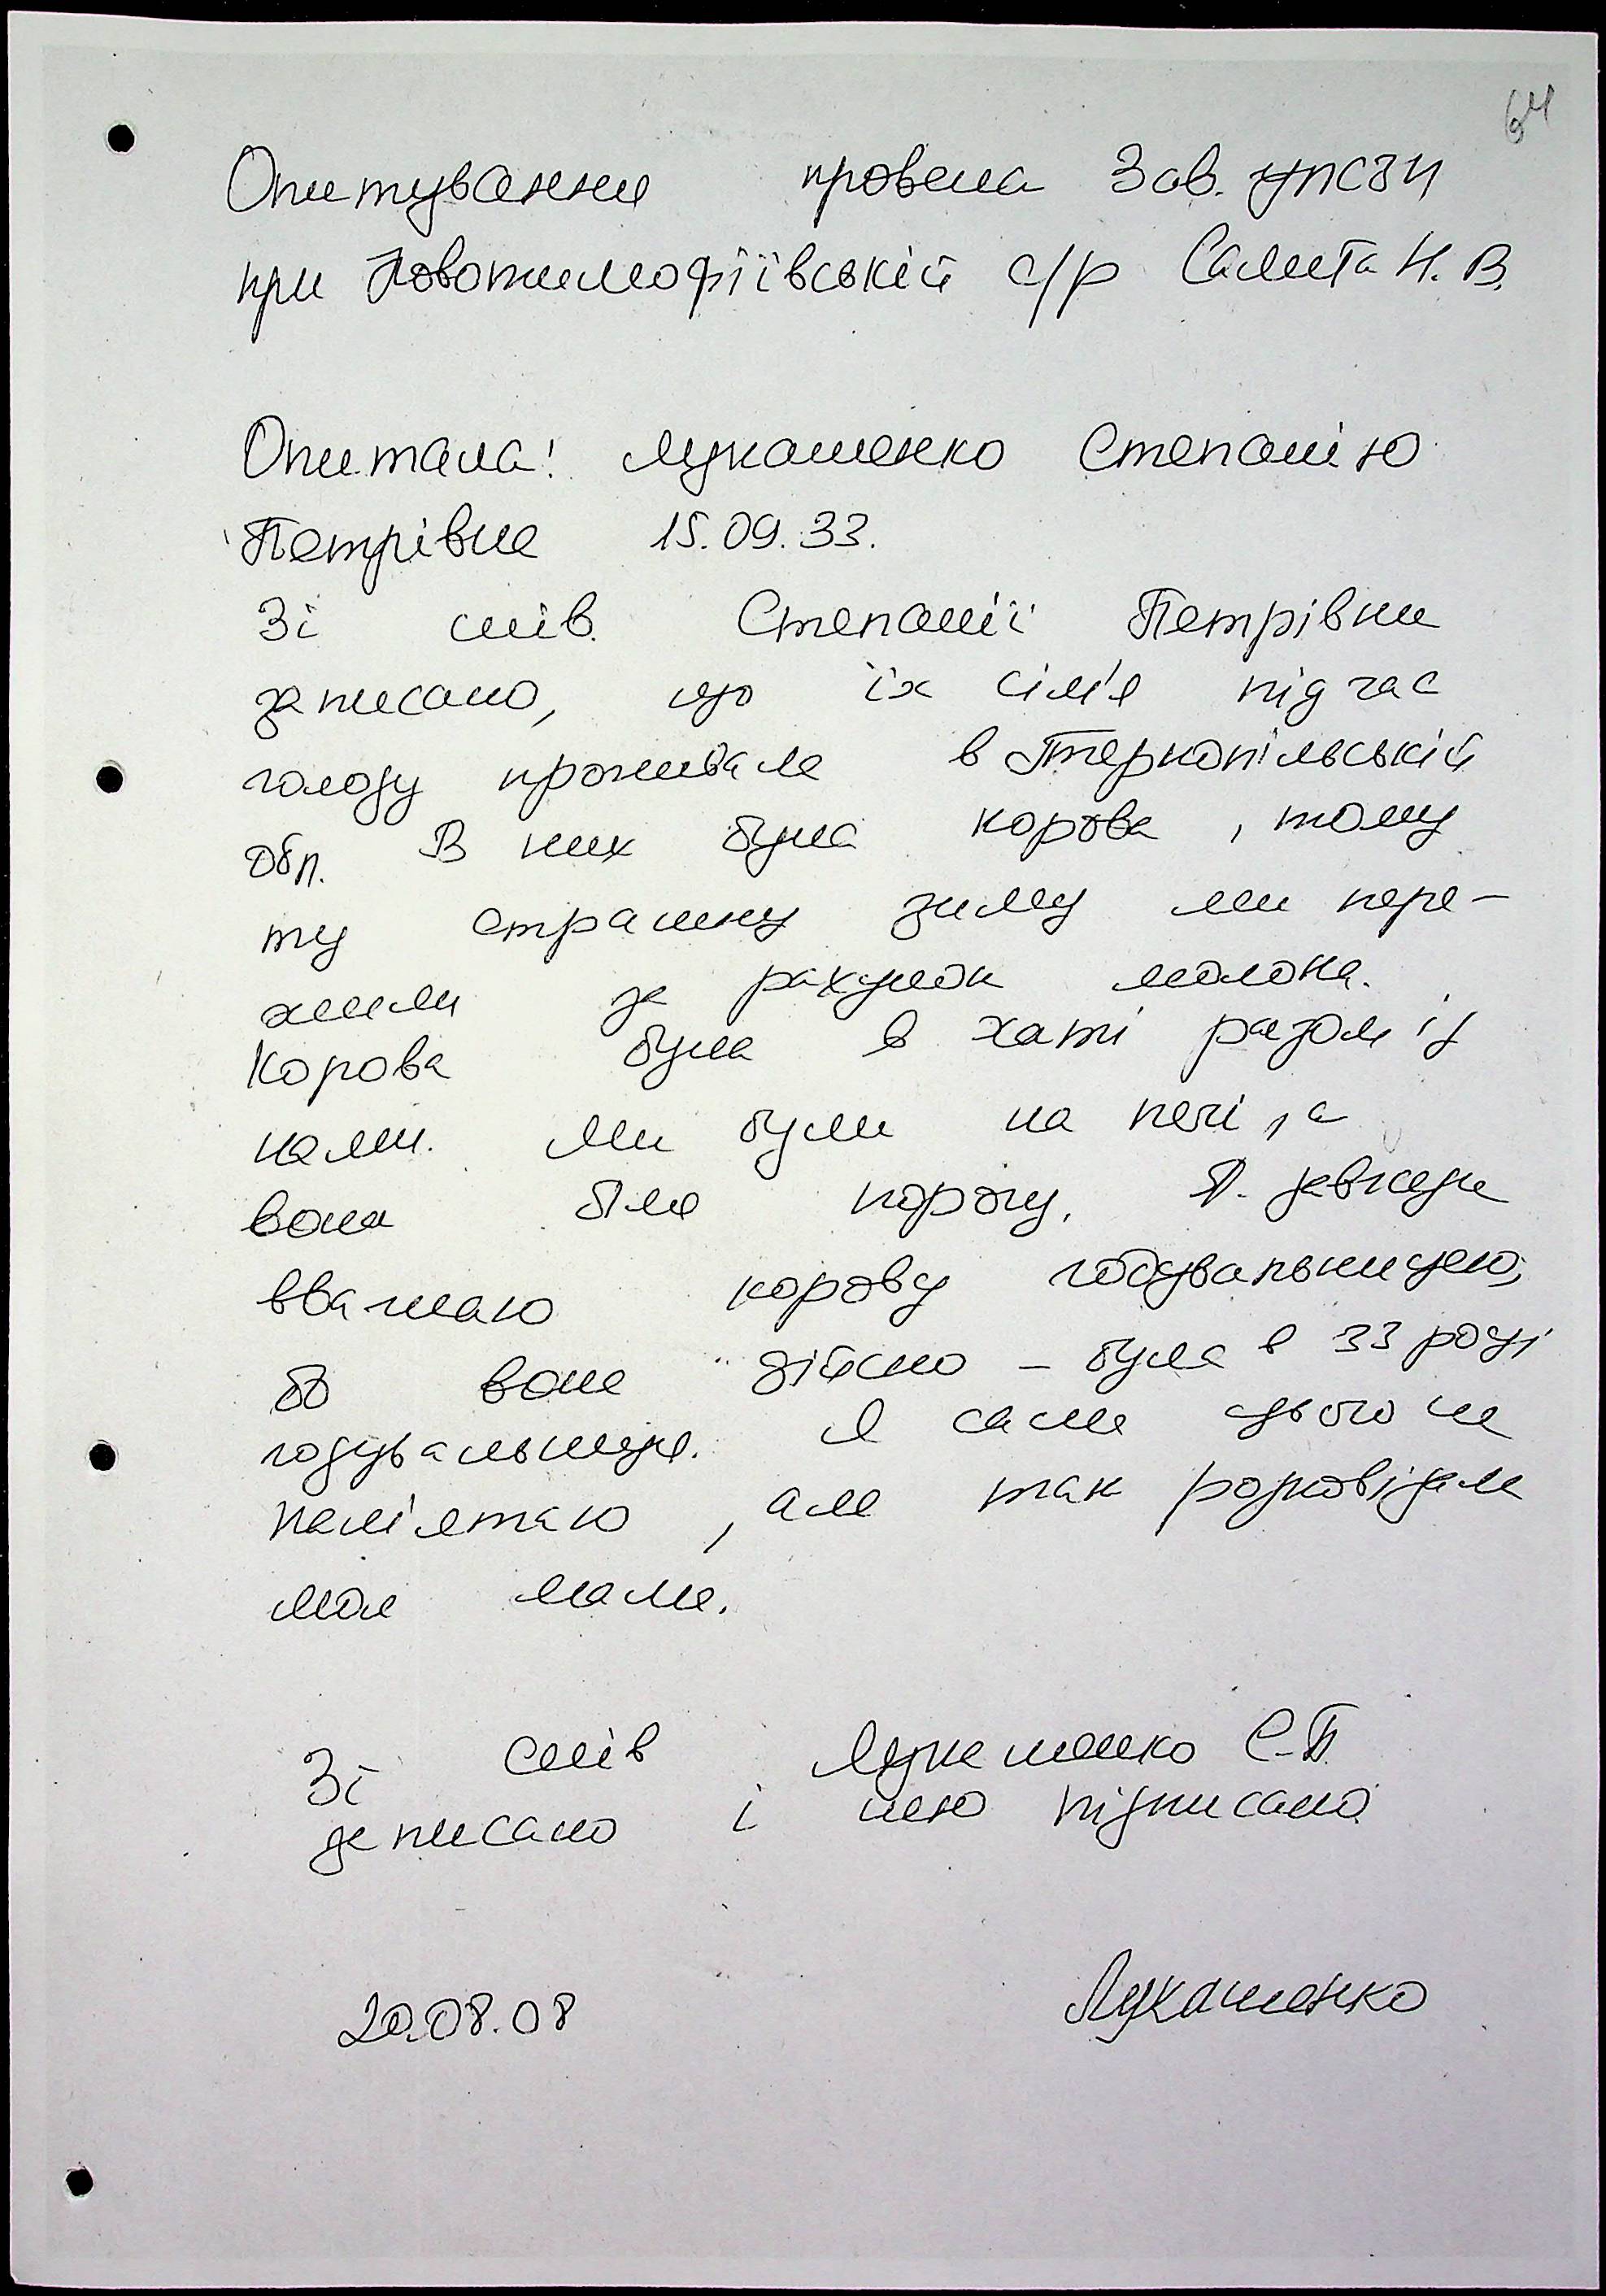 64
Опитування провела Зав. УПСЗН
при Новотимофіївській с/р Салита Н. В.
Опитала: Лукашенко Степанію
Петрівна 15.09.33.
Зі слів. Степанії Петрівни
записано, що їх сім'я під час
голоду проживала в Тернопільській
обл. В них була корова, тому
ту страшну зиму ми пере-
жили за рахунок молока.
Корова була в хаті разом із
нами. Ми були на печі, а
вона біля порогу. Я завжди
вважаю корову годувальницею,
бо вона дійсно – була в 33 році
годувальниця. Я сама цього не
пам'ятаю, але так розповідала
моя мама.
Зі слів Лукашенко С.П.
записано і нею підписано
20.08.08 Лукашенко